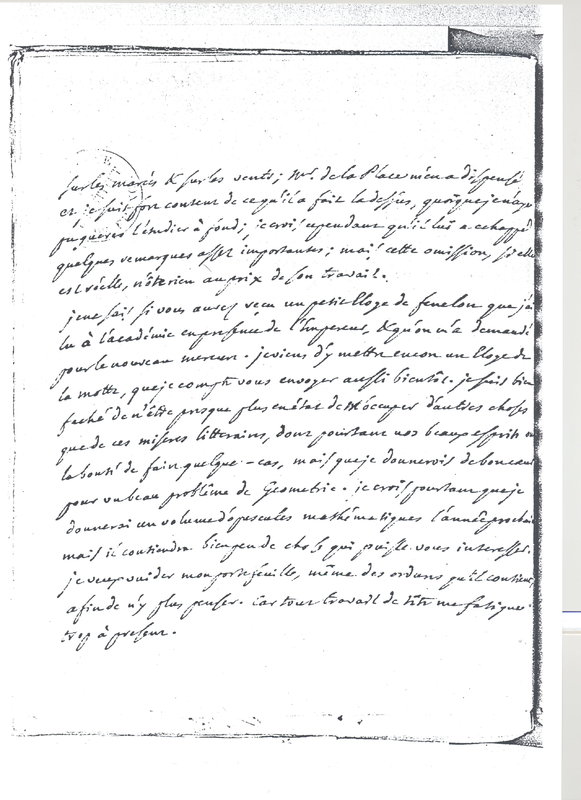 sur les marées & sur les vents; Mr. de la Place m'en a dispensé
et je suis fort content de ce qu'il a fait la dessus, quoique je n'aye
pu gueres l'étudier à fond; je crois cependant qu'il lui a echappé
quelques remarques assez importantes; mais cette omission, si elle
est réelle, n'ôte rien au prix de son travail.
je ne sais si vous aurez reçu un petit Eloge de fenelon que j'ai
lu à l'académie en presence de l'Empereur, & qu'on m'a demandé
pour le nouveau mercure. je viens d'y mettre encor un Eloge de
la motte, que je compte vous envoyer aussi bientôt. je suis bien
faché de n'être presque plus en état de m'occuper d'autres choses
que de ces miseres litteraires, dont pourtant nos beaux esprits ont
la bonté de faire quelque cas, mais que je donnerois de bon cœur
pour un beau problême de Geometrie. je crois pourtant que je
donnerai un volume d'opuscules mathématiques l'année prochaine
mais il contiendra bien peu de chose qui puisse vous interesser.
je veux vuider mon portefeuille, même des ordures qu'il contient,
afin de n'y plus penser. car tout travail de tête me fatigue
trop à present.